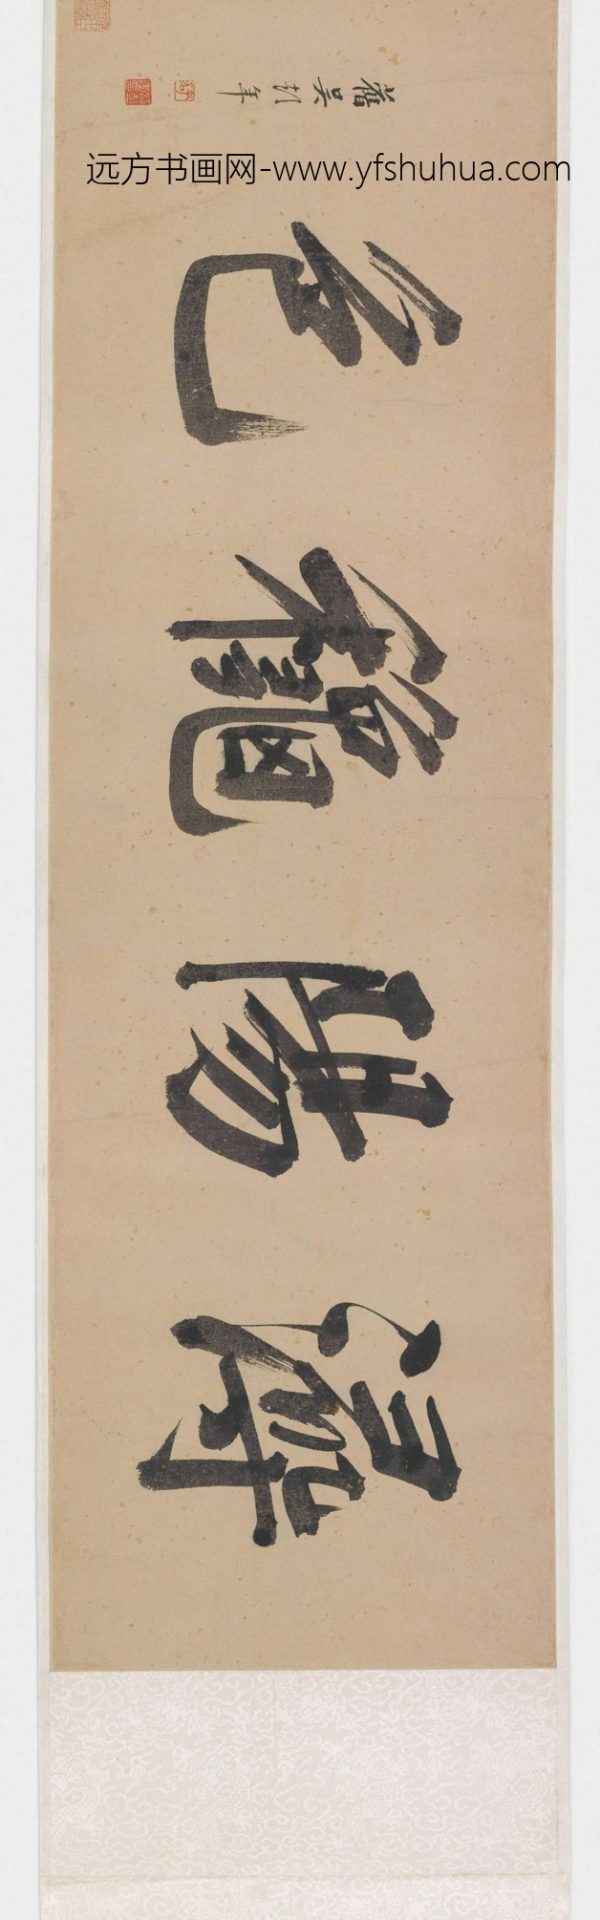 远方书画网-www.yfshuhua.com
潯陽龝色